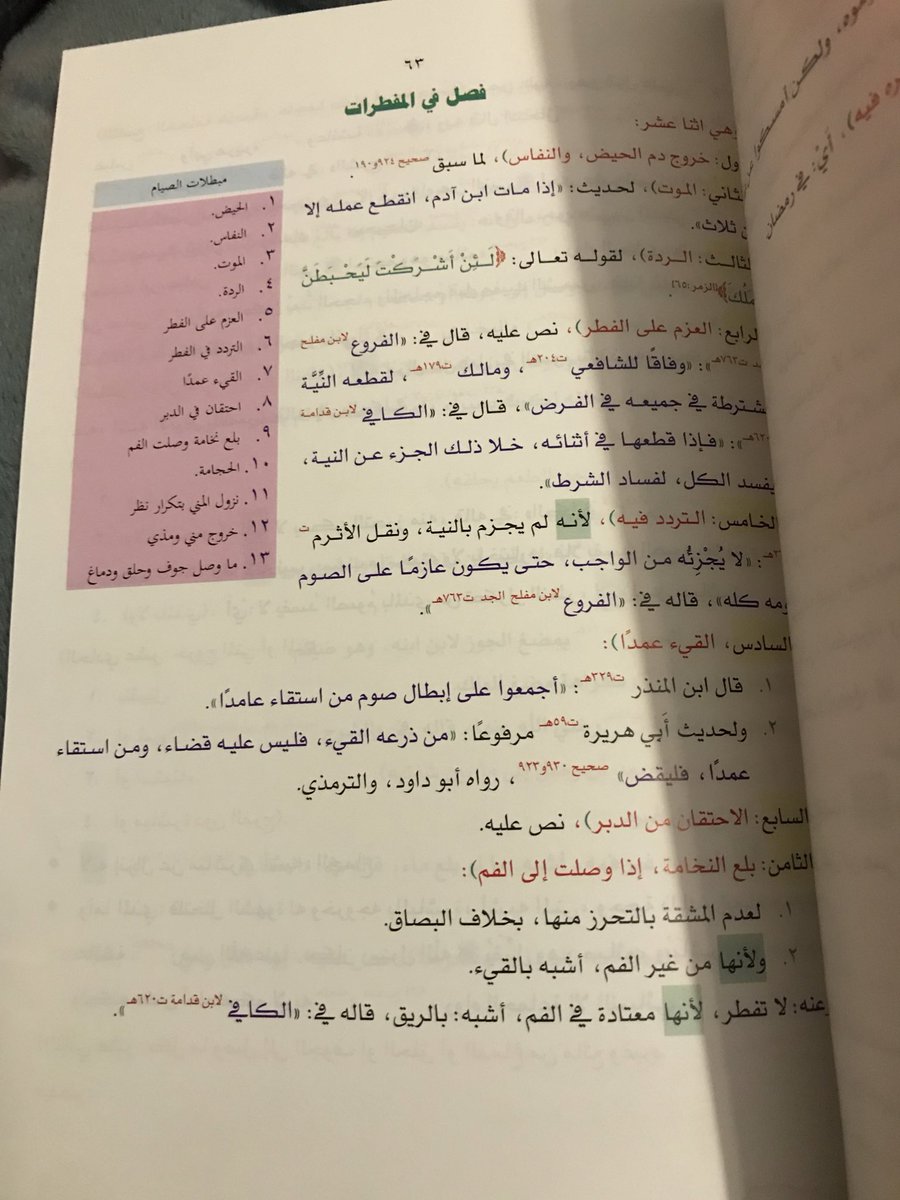 ٦٣
فصل في المفطرات
وهي اثنا عشر:
ول: خروج دم الحيض، والنفاس)، لما سبق صحيح ٩٢٤و١٩٠.
لثاني: الموت)، لحديث: «إذا مات ابن آدم، انقطع عمله إلا
ن ثلاث».
لثالث: الردة)، لقوله تعالى: ﴿لَئِنْ أَشْرَكْتَ لَيَحْبَطَنَّ
مَلُكَ﴾ [الزمر:٦٥].
لرابع: العزم على الفطر)، نص عليه، قال في: «الفروع لابن مفلح
جد ت٧٦٣هـ»: «وفاقًا للشافعي ت٢٠٤هـ، ومالك ت١٧٩هـ، لقطعه النِّيَّة
مشترطة في جميعه في الفرض»، قال في: «الكافي لابن قدامة
٦٢٠هـ»: «فإذا قطعها في أثنائه، خلا ذلك الجزء عن النية،
يفسد الكل، لفساد الشرط».
الخامس: التردد فيه)، لأنه لم يجزم بالنية، ونقل الأثرم ت
هـ: «لا يُجْزِئُه من الواجب، حتى يكون عازمًا على الصوم
ومه كله»، قاله في: «الفروع لابن مفلح الجد ت٧٦٣هـ».
السادس، القيء عمدًا):
١. قال ابن المنذر ت٣٢٩هـ: «أجمعوا على إبطال صوم من استقاء عامدًا».
٢. ولحديث أَبِي هريرة ت٥٩هـ مرفوعًا: «من ذرعه القيء، فليس عليه قضاء، ومن استقاء
عمدًا، فليقض» صحيح ٩٣٠و٩٢٣، رواه أبو داود، والترمذي.
السابع: الاحتقان من الدبر)، نص عليه.
الثامن: بلع النخامة، إذا وصلت إلى الفم):
١. لعدم المشقة بالتحرز منها، بخلاف البصاق.
٢. ولأنها من غير الفم، أشبه بالقيء.
وعنه: لا تفطر، لأنها معتادة في الفم، أشبه: بالريق، قاله في: «الكافي لابن قدامة ت٦٢٠هـ».
مبطلات الصيام
١. الحيض.
٢. النفاس.
٣. الموت.
٤. الردة.
٥. العزم على الفطر
٦. التردد في الفطر
٧. القيء عمدًا
٨. احتقان في الدبر
٩. بلع نخامة وصلت الفم
١٠. الحجامة.
١١. نزول المني بتكرار نظر
١٢. خروج مني ومذي
١٣. ما وصل جوف وحلق ودماغ
موه، ولكن أمسكوا
ره فيه)، أَيْ: في رمضان